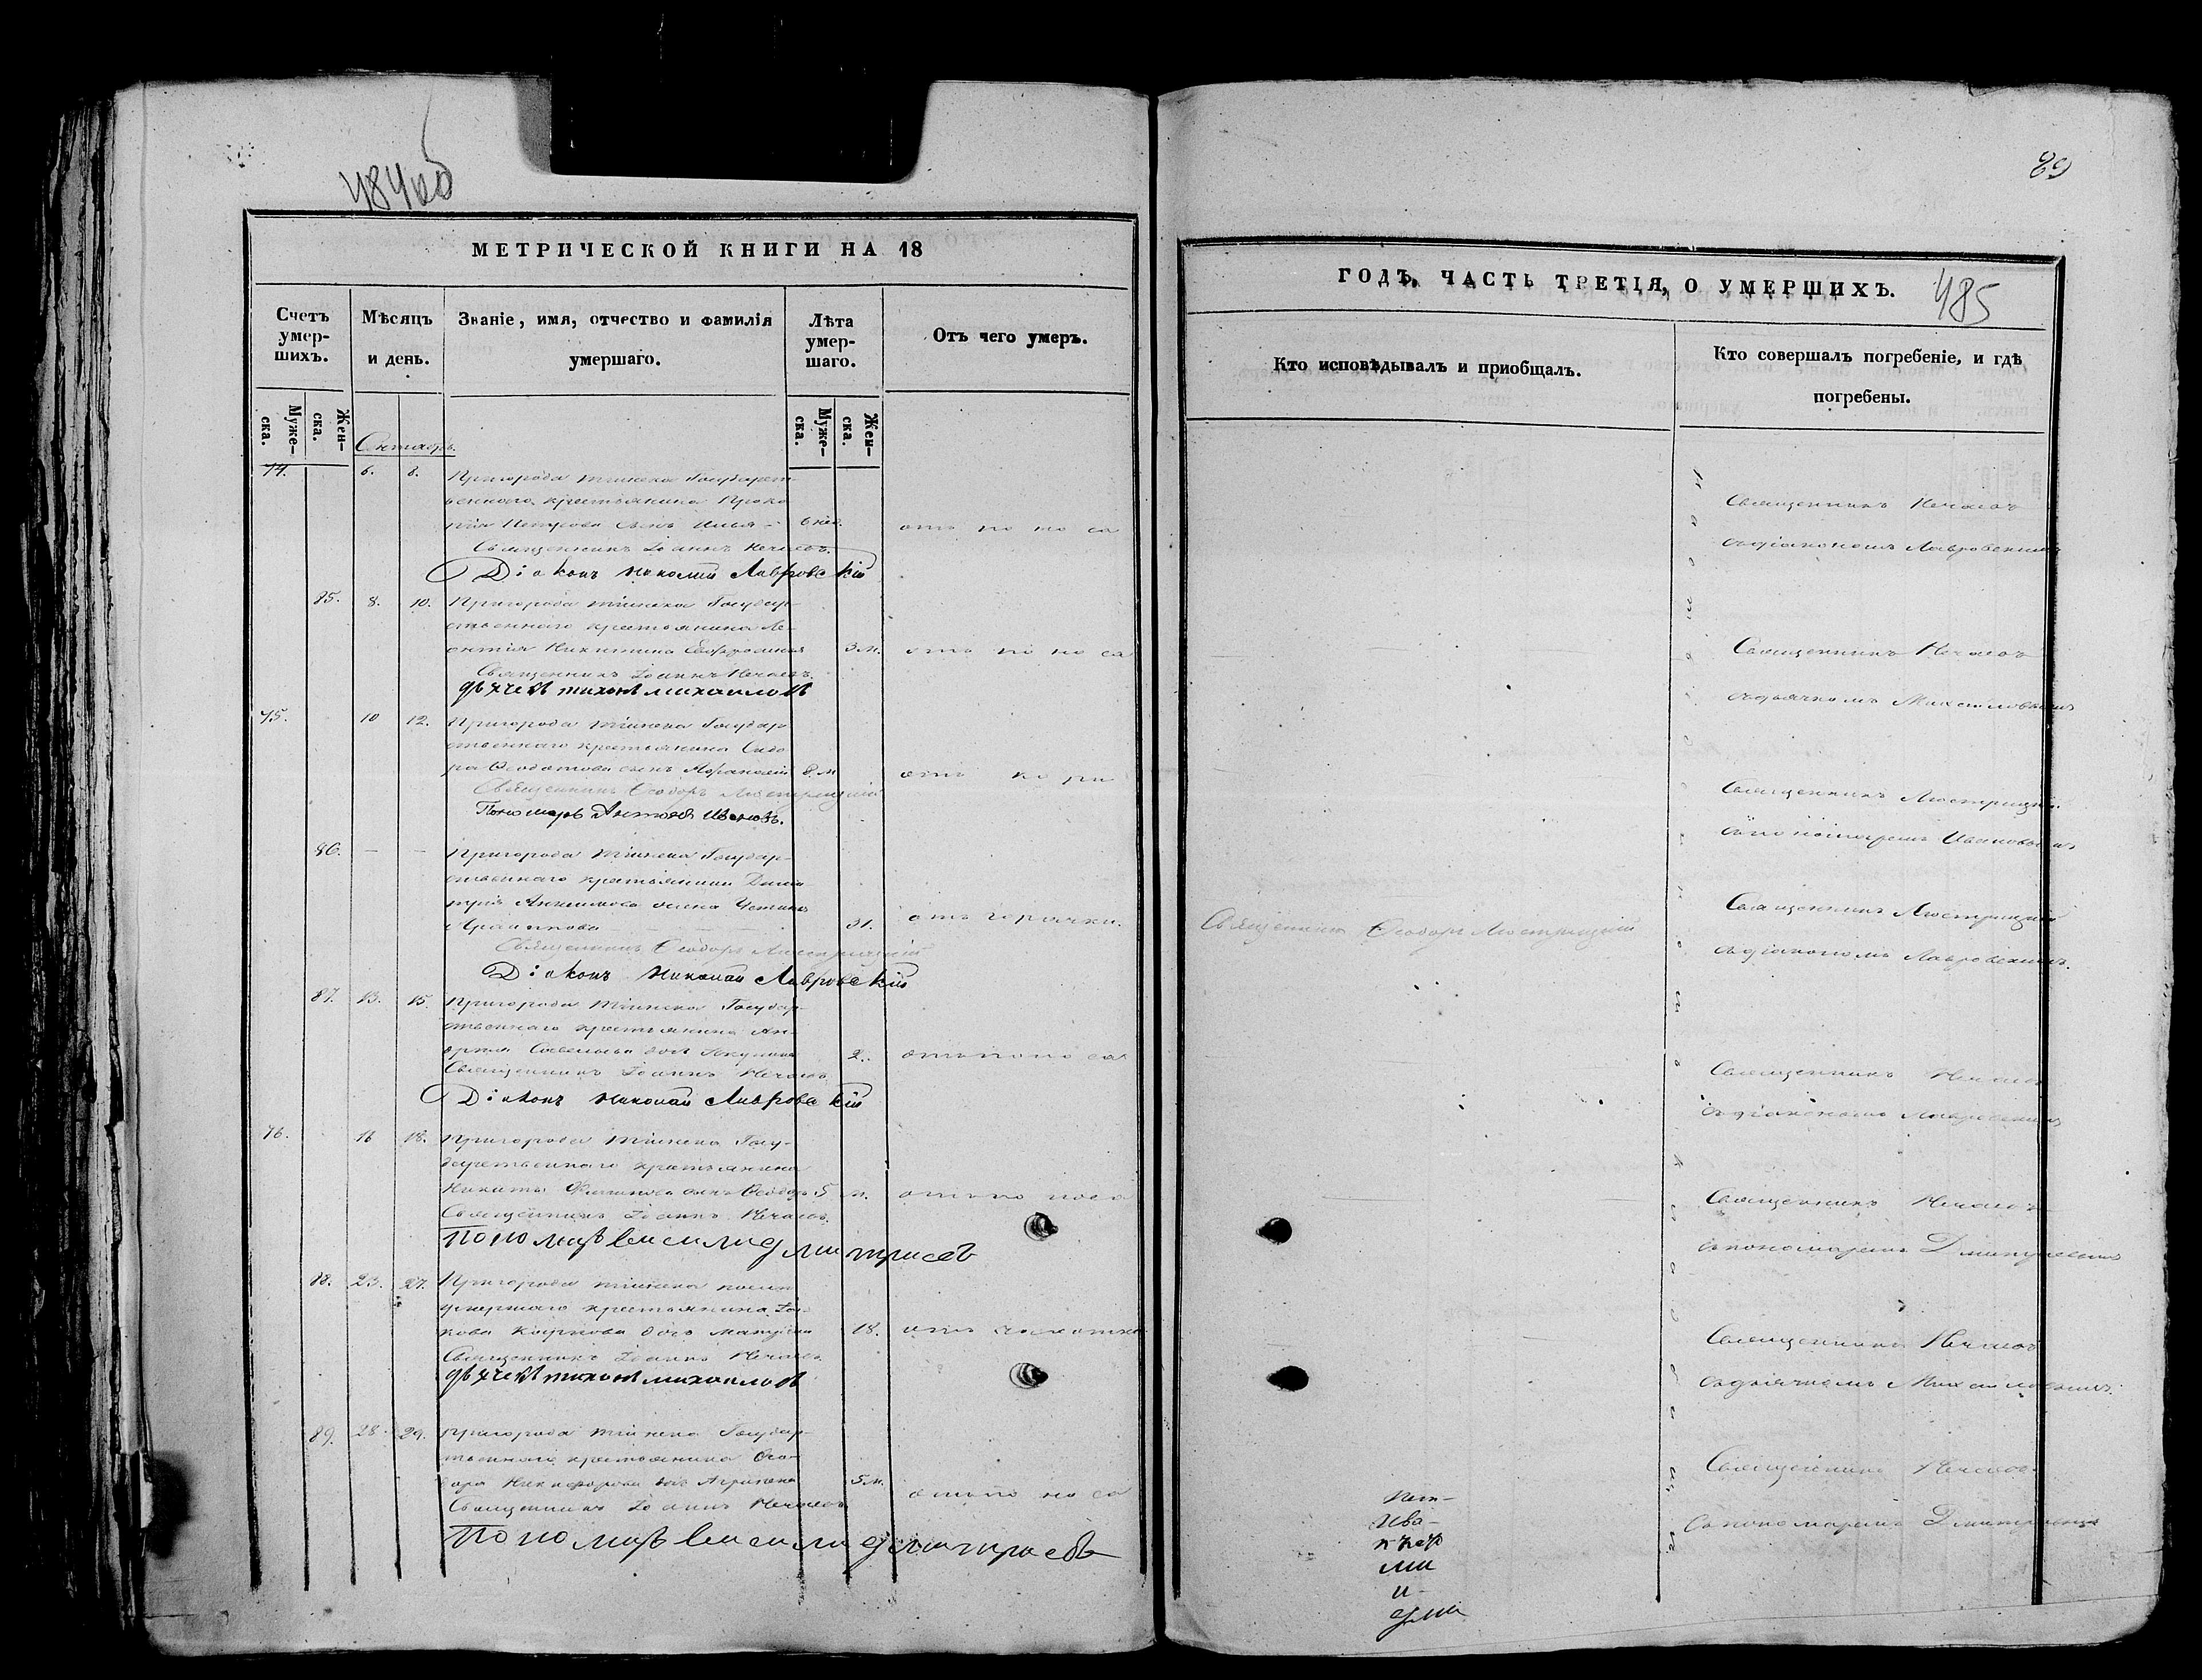 484об
МЕТРИЧЕСКОЙ КНИГИ НА 18
Счетъ умер-шихъ.
Мѣсяцъ и день.
Званіе, имя, отчество и фамилія умершаго.
Лѣта умер-шаго.
Отъ чего умеръ.
Муже-ска.
Жен-ска.
Муже-ска.
Жен-ска.
Октябрь.
74. 6. 8. Пригорода Тіинска Государст-
веннаго крестьянина Проко
пія Петрова сынъ Илья 6 нед. отъ поноса
Священникъ Іоаннъ Нечаевъ.
Діаконъ Николай Лавровскій
85. 8. 10. Пригорода Тіинска Государ-
ственнаго крестьянина Ле-
онтія Никитина 3 м. отъ поноса
Священникъ Іоаннъ Нечаевъ.
дьячекъ тихонъ михаиловъ
75. 10 12. Пригорода Тіинска Государ
ственнаго крестьянина Сидо
ра Ѳедотова сынъ Афанасій 8 м отъ кори
Священникъ Ѳеодоръ Люстрицкій
Пономарь Антонъ Ивановъ.
86. — — Пригорода Тіинска Государ-
ственнаго крестьянина Дими
трія жена
31. отъ горячки.
Священникъ Ѳеодоръ Люстрицкій
Діаконъ Николай Лавровскій
87. 13. 15. Пригорода Тіинска Государ-
ственнаго крестьянина Ан-
дрея Савельева дочь 2. отъ поноса
Священникъ Іоаннъ Нечаевъ
Діаконъ Николай Лавровскій
76. 16 18. Пригорода Тіинска Госу-
дарственнаго крестьянина
Никиты Филипова сынъ Ѳеодоръ 5 м. отъ поноса
Священникъ Іоаннъ Нечаевъ.
Пономарь Василий Дмитриевъ
88. 23. 27. Пригорода Тіинска
умершаго крестьянина Іа-
кова дочь 18. отъ чахотки
Священникъ Іоаннъ Нечаевъ
дьячекъ тихонъ михаиловъ
89. 28 29. Пригорода Тіинска Государ-
ственнаго крестьянина Ѳео-
дора Никифорова дочь 5 м. отъ поноса
Священникъ Іоаннъ Нечаевъ
Пономарь Василий Дмитриевъ
89
ГОДЪ, ЧАСТЬ ТРЕТІЯ, О УМЕРШИХЪ.
485
Кто исповѣдывалъ и приобщалъ.
Кто совершалъ погребеніе, и гдѣ погребены.
Священникъ Нечаевъ
съ діакономъ Лавровскимъ
Священникъ Нечаевъ
съ дьячкомъ Михаиловымъ
Священникъ Люстрицкій
съ пономаремъ Ивановымъ
Священникъ Ѳеодоръ Люстрицкій
Священникъ Люстрицкій
съ діакономъ Лавровскимъ.
Священникъ Нечаевъ
съ діакономъ Лавровскимъ
Священникъ Нечаевъ
съ пономаремъ Дмитріевымъ
Священникъ Нечаевъ
съ дьячкомъ Михаиловымъ.
Священникъ Нечаевъ
съ пономаремъ Дмитріевымъ